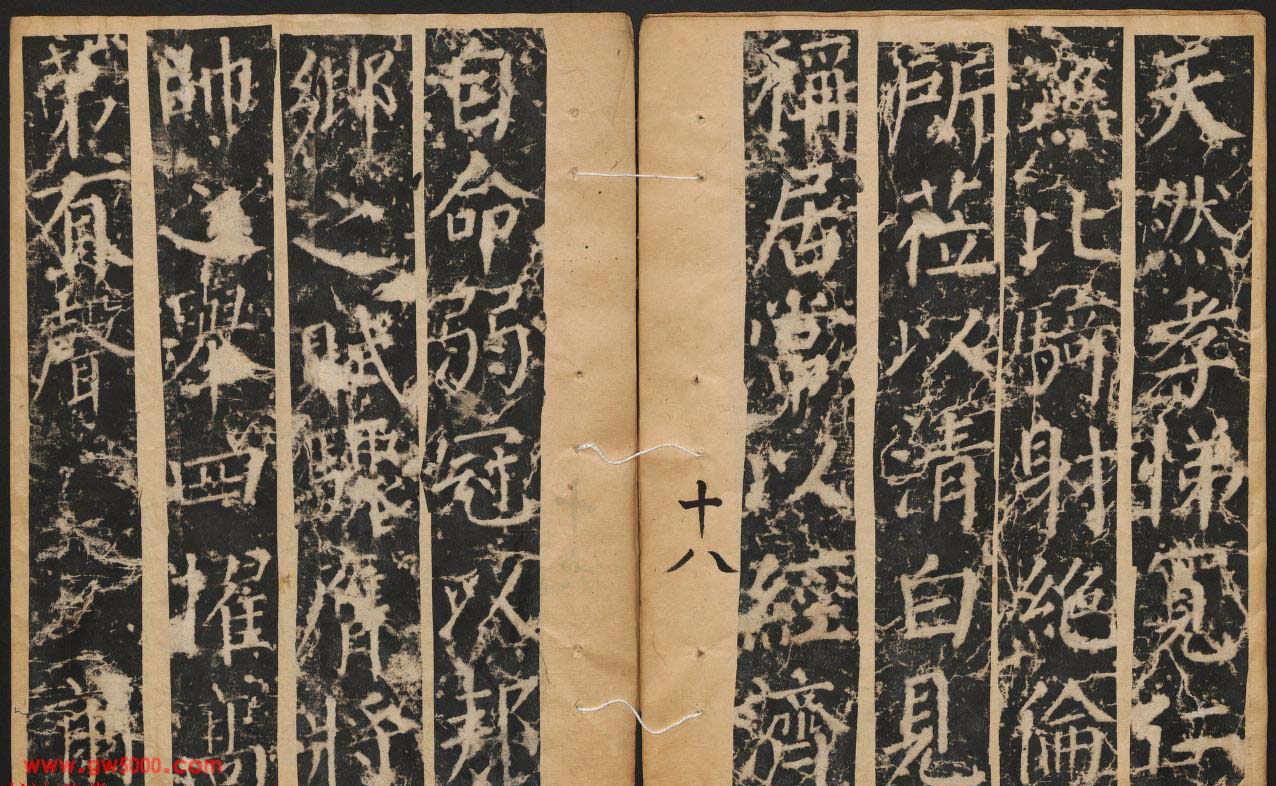 天然孝悌寬仁
無比騎射絶倫
所莅以清白見
稱居常以經濟
十八
自命弱冠以邦
鄉之賦驟膺將
帥之舉四擢高
苐有聲
www.gw5000.com